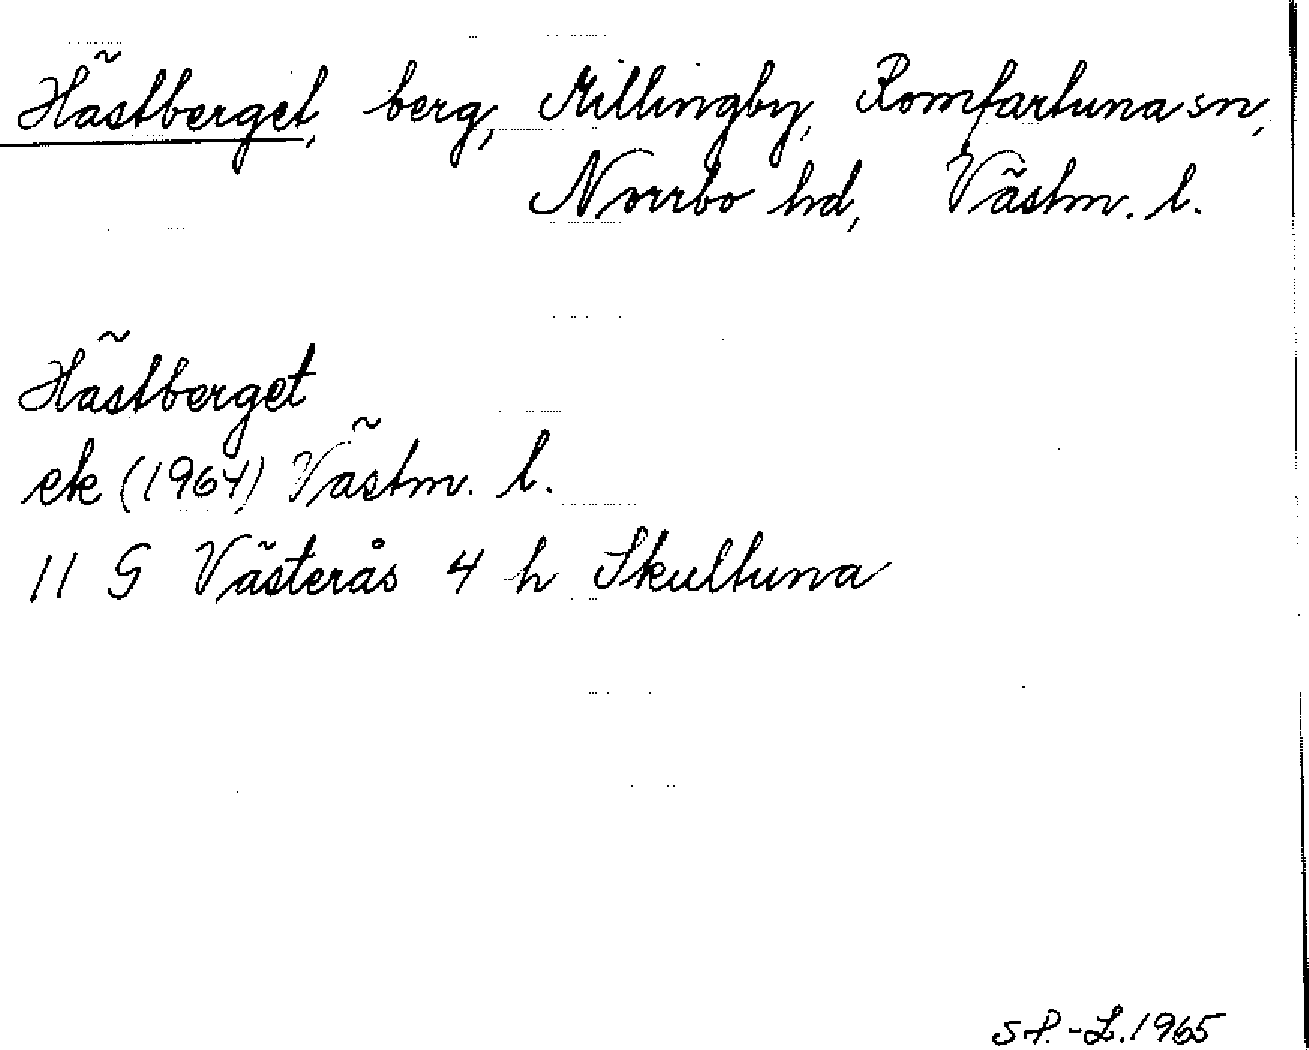 Hästberget, berg, Millingby, Romfartuna sn,
Norrbo hd, Västm. l.
Hästberget
ek (1964) Västm. l.
11 G Västerås 4 h Skultuna
S P.-L. 1965